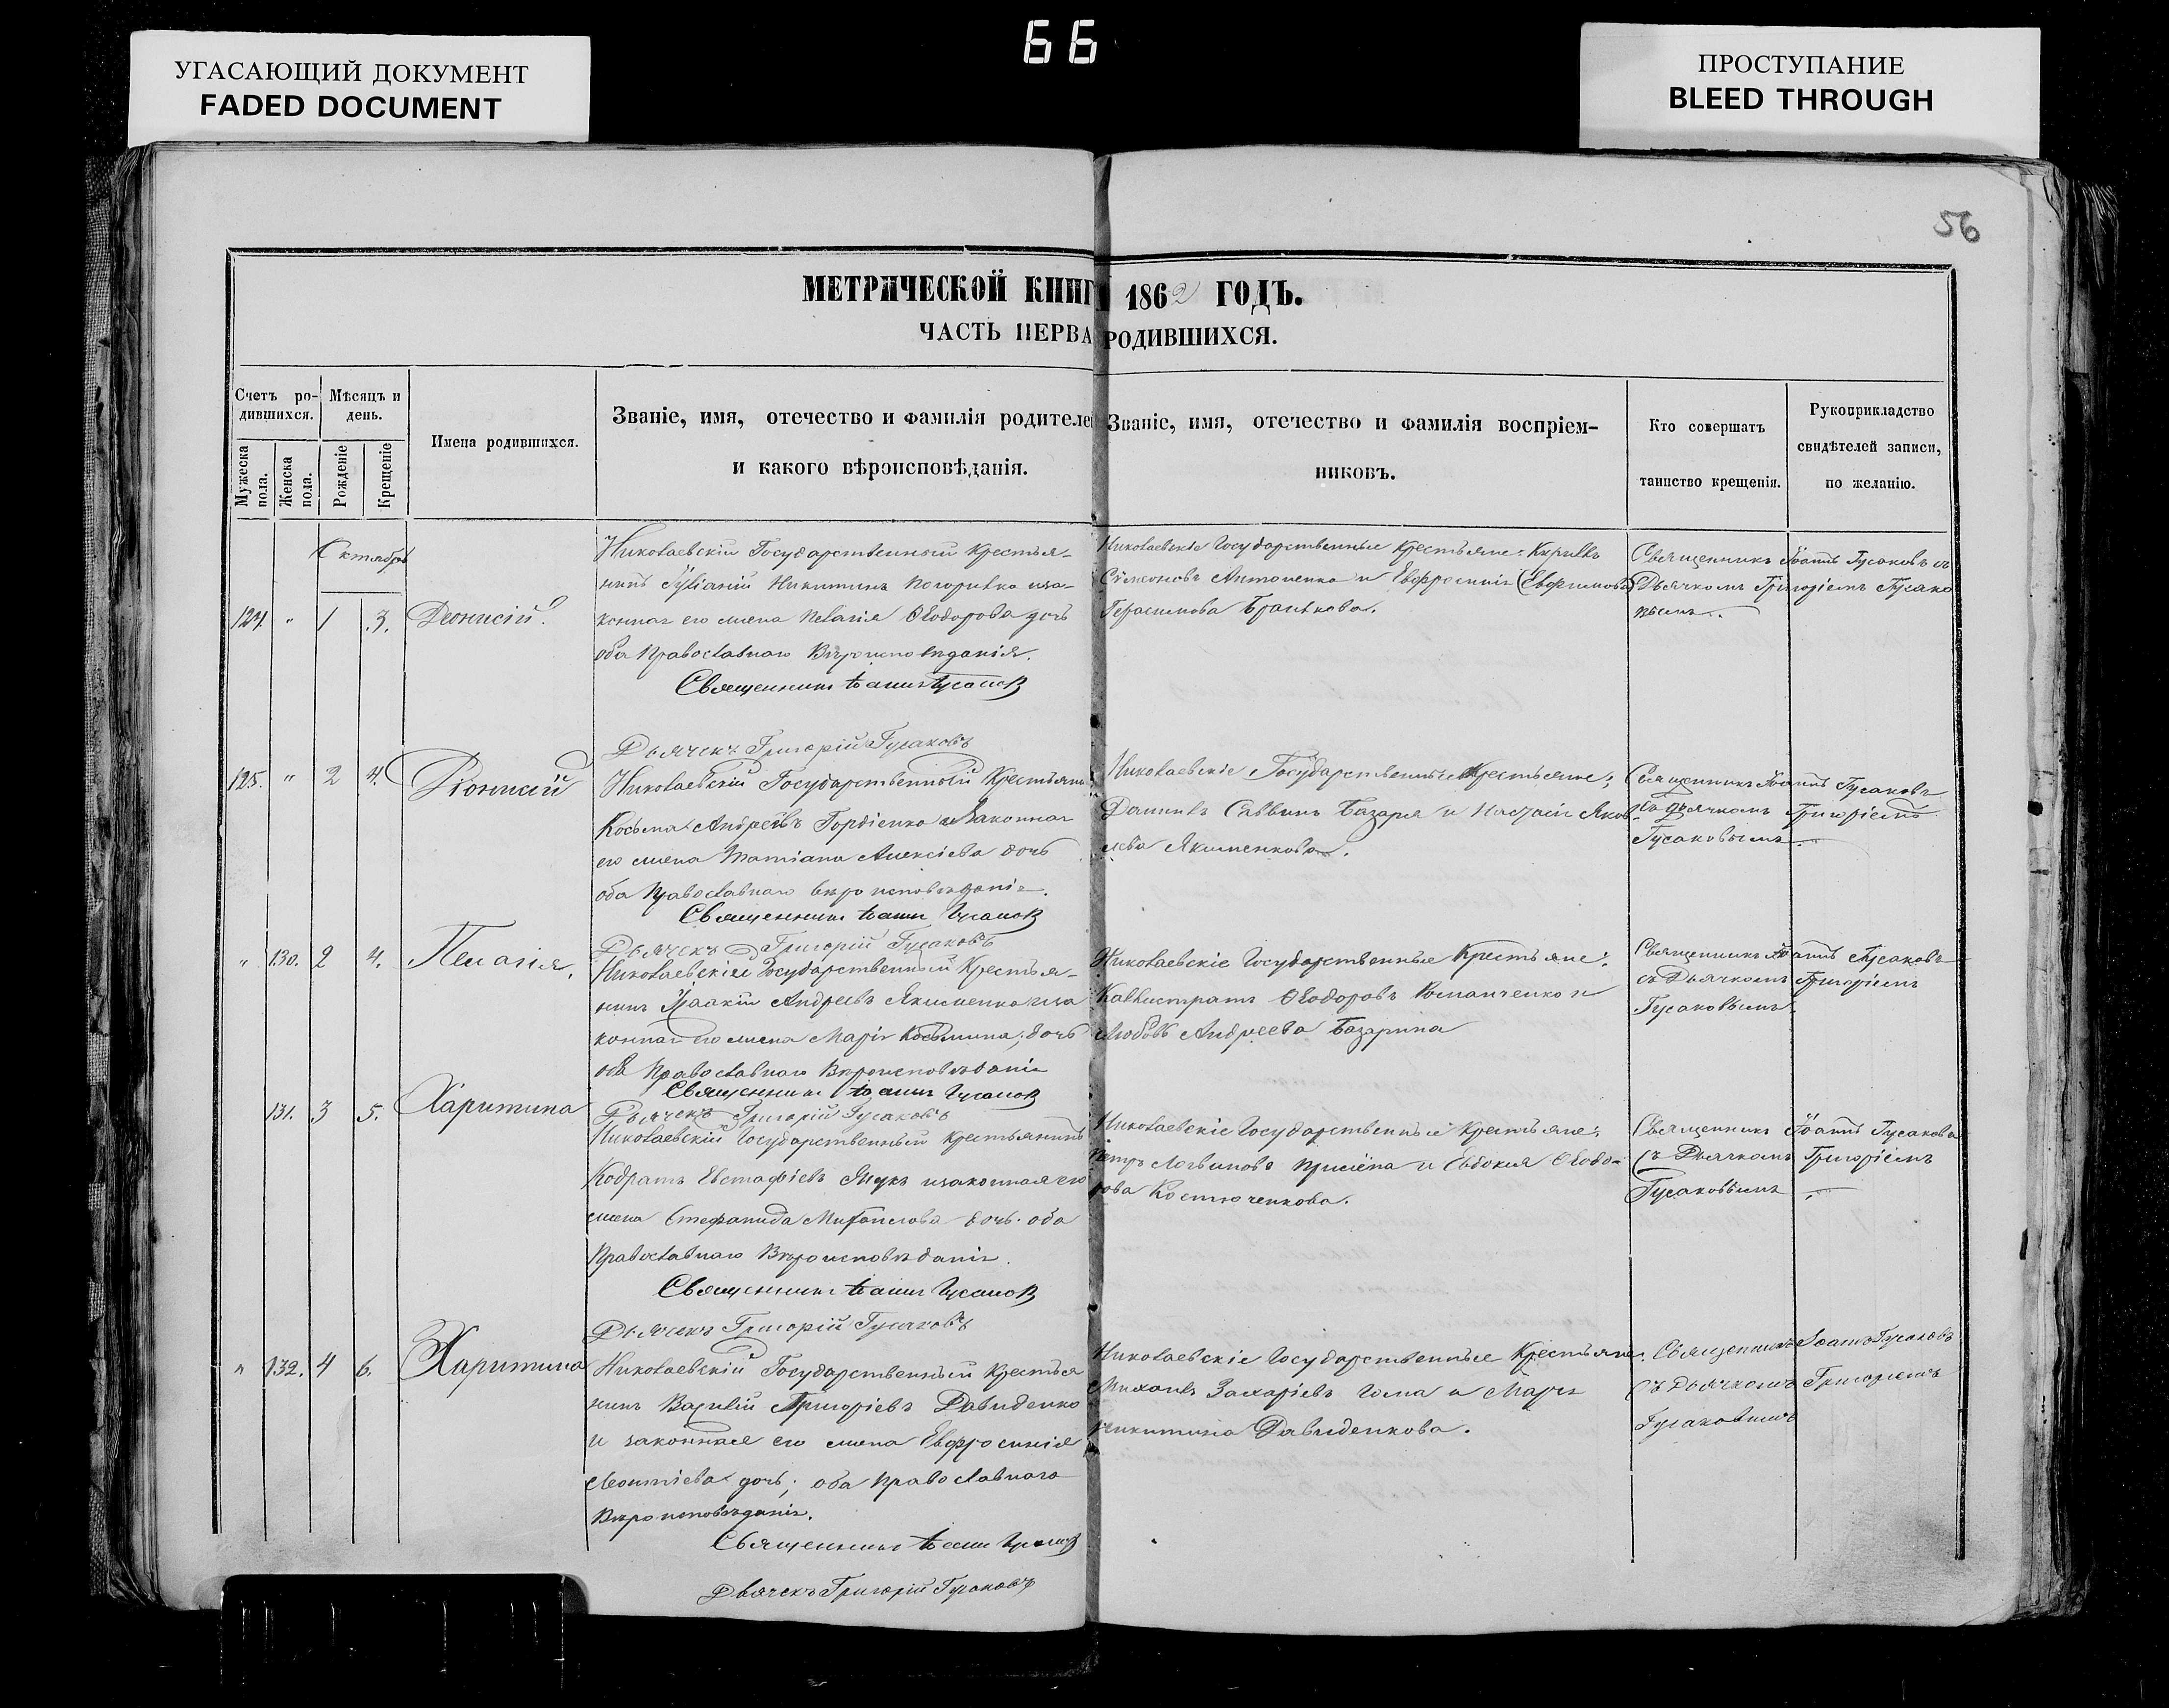 66
УГАСАЮЩИЙ ДОКУМЕНТ
FADED DOCUMENT
ПРОСТУПАНИЕ
BLEED THROUGH
56
МЕТРИЧЕСКОЙ КНИГ 1862 ГОДЪ.
ЧАСТЬ ПЕРВА РОДИВШИХСЯ.
Счетъ ро-
дившихся.
Мужеска пола.
Женска пола.
Мѣсяцъ и
день.
Рожденіе
Крещеніе
Имена родившихся.
Званіе, имя, отечество и фамилія родителе
и какого вѣроисповѣданія.
Званіе, имя, отечество и фамилія воспріем-
никовъ.
Кто совершатъ
таинство крещенія.
Рукоприкладство
свидѣтелей записи,
по желанію.
Октябрь
124. " 1 3. Деонисій
Николаевскій Государственный Крестья-
нинъ Іуліаній Никитинъ Погорилко и за-
конная его жена Пелагія Ѳеодорова дочь
оба Православнаго Вѣроисповѣданія.
Священникъ Іоаннъ Гусаковъ
Дьячекъ Григорій Гусаковъ
Николаевскіе Государственные Крестьяне: Кириллъ
Симоновъ Антоненко и Евфросинія
Герасимова
Священникъ Іоаннъ Гусаковъ съ
Дьячкомъ Григоріемъ Гусако
вымъ.
125. " 2 4. Діонисій
Николаевскій Государственный Крестьянинъ
Косьма Андреевъ Гордіенко и законная
его жена Татіана Алексіева дочь
оба Православнаго вѣроисповѣданія.
Священникъ Іоаннъ Гусаковъ
Дьячекъ Григорій Гусаковъ
Николаевскіе Государственные Крестьяне;
Даніилъ Саввинъ Базаря и Настасія Яков-
лева Якименкова.
Священникъ Іоаннъ Гусаковъ
съ Дьячкомъ Григоріемъ
Гусаковымъ
" 130. 2 4. Пелагія.
Николаевскій Государственный Крестья-
нинъ Ісаакій Андреевъ Якименко и за
конная его жена Марія Косьмина; дочь
оба Православнаго Вѣроисповѣданія
Священникъ Іоаннъ Гусаковъ
Дьячекъ Григорій Гусаковъ
Николаевскіе Государственные Крестьяне:
Каллистратъ Ѳеодоровъ Романченко и
Любовь Андреева Базарина
Священникъ Іоаннъ Гусаковъ
съ Дьячкомъ Григоріемъ
Гусаковымъ
131. 3 5. Харитина
Николаевскій Государственный Крестьянинъ
Кодратъ Евстафіевъ Янукъ и законная его
жена Стефанида Михаилова дочь. оба
Православнаго Вѣроисповѣданія.
Священникъ Іоаннъ Гусаковъ
Дьячекъ Григорій Гусаковъ
Николаевскіе Государственные Крестьяне:
Петръ Логвиновъ и Евдокія Ѳеодо-
рова Костюченкова.
Священникъ Іоаннъ Гусаковъ
съ Дьячкомъ Григоріемъ
Гусаковымъ
" 132. 4 6. Харитина
Николаевскій Государственный Крестья
нинъ Василій Григоріевъ Давиденко
и законная его жена Евфросинія
Леонтіева дочь; оба Православнаго
Вѣроисповѣданія.
Священникъ Іоаннъ Гусаковъ
Дьячекъ Григорій Гусаковъ
Николаевскіе Государственные Крестьяне:
Михаилъ Захаріевъ Гома и Марія
Никитина Давиденкова.
Священникъ Іоаннъ Гусаковъ
съ Дьячкомъ Григоріемъ
Гусаковымъ